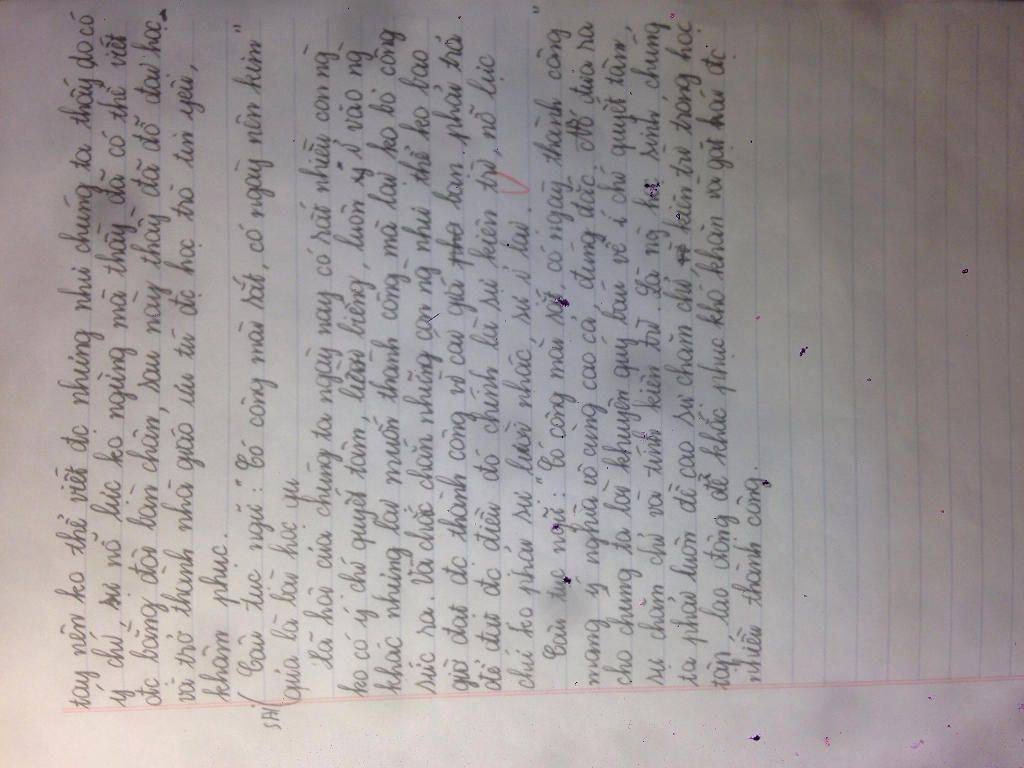 tay nên ko thể viết đc nhưng như chúng ta thấy do có
ý chí, sự nổ lúc ko ngừng mà thầy đã có thể viết
đc bằng đôi bàn chân, sau này thầy đã đổ đai học
và trở thành nhà giáo ưu tú đc học trò tin yêu,
khâm phục.
Câu tục ngữ: "Có công mài sắt, có ngày nên kim"
SAI ( quả là bài học
Xã hội của chúng ta ngày nay có rất nhiều con ng
ko có ý chí quyết tâm, lười biếng, luôn ỷ i vào ng
khác nhưng lại muốn thành công mà lại ko bỏ công
sức ra. Và chắc chắn những con ng như thế ko bao
giờ đạt đc thành công vì cái giá bạn phải trả
để đạt đc điều đó chính là sự kiên trì, nổ lực
chứ ko phải sự lười nhác, sự ỉ lại.
Câu tục ngữ: "Có công mài sắt, có ngày thành công"
mang ý nghĩa vô cùng cao cả, đúng đắc. đưa ra
cho chúng ta lời khuyên quý báu về í chí quyết tâm,
sự chăm chỉ và tính kiên trì. Là ng học sinh chúng
ta phải luôn đề cao sự chăm chỉ kiên trì trong học
tập, lao động để khắc phục khó khăn và gặt hái đc
nhiều thành công.